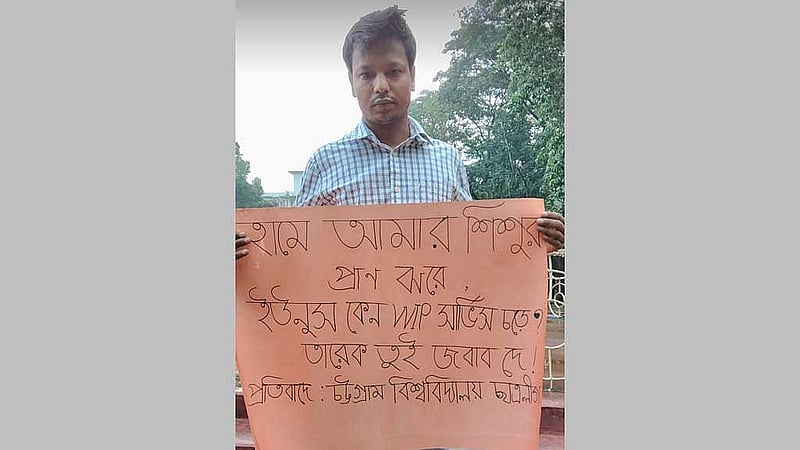 হামে আমার শিশুর
প্রাণ ঝরে,
ইউনুস কেন VVIP সার্ভিস চড়ে?
তারেক তুই জবাব দে!
প্রতিবাদে: চট্টগ্রাম বিশ্ববিদ্যালয় ছাত্রলীগ